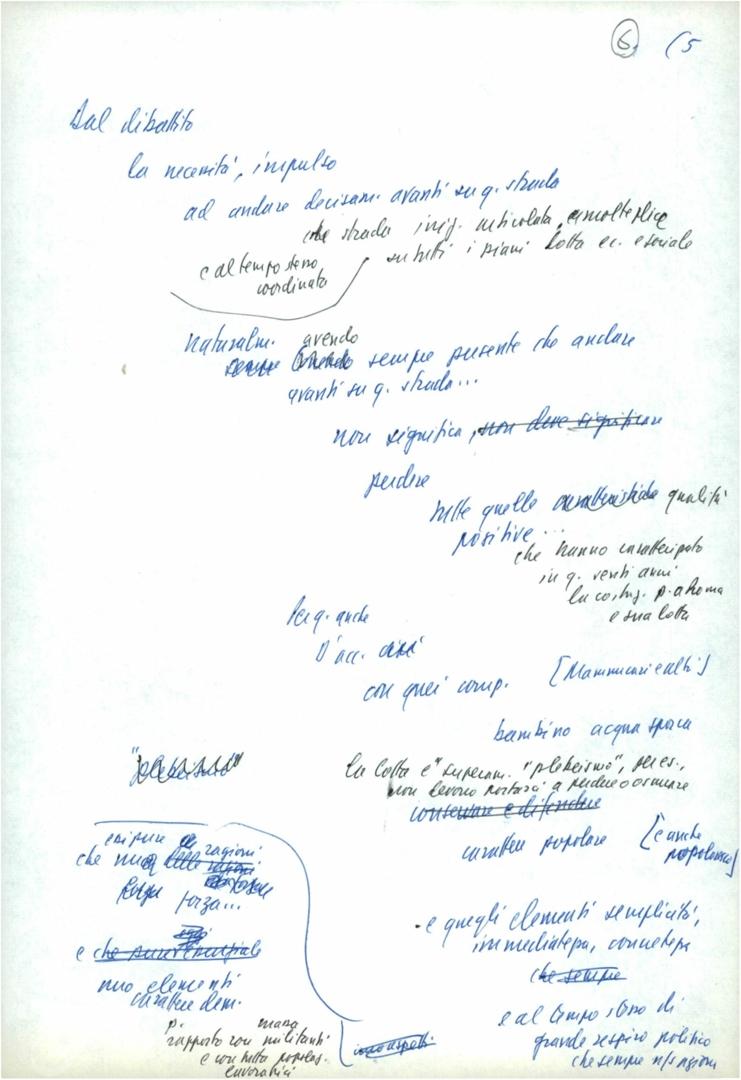 6. (5
Dal dibattito
la necessità, impulso
ad andare decisam. avanti su q. strada
che strada articolata, e molteplice
su tutti i piani lotta ec. e sociale
e al tempo stesso
coordinata
Naturalm. avendo
sempre presente che andare
avanti su q. strada...
non significa, non deve significare
perdere
tutte quelle caratteristiche qualità
positive...
che hanno caratterizzato
in q. venti anni
la costruz. p. a Roma
e sua lotta
Per q. anche
D'acc.
con quei comp. [Mammucari e altri]
bambino acqua sporca
la lotta e superam. "plebeismo", per es.,
non devono portarci a perdere o oscurare
conservare e difendere
carattere popolare [e anche
popolaresco]
eppure
che ragioni
forza...
e che
suo elementi
carattere dem.
p. massa
rapporto con militanti
e con tutta popolaz.
lavoratrici
e quegli elementi semplicità,
immediatezza, concretezza
che sempre
e al tempo stesso di
grande respiro politico
che sempre